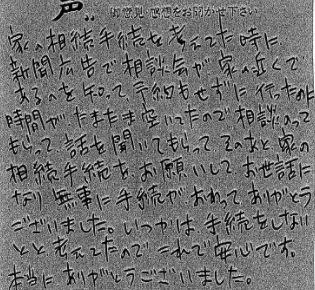 声 御意見・感想をお聞かせ下さい
家の相続手続を考えてた時に、
新聞広告で相談会が家の近くで
あるのを知って、予約もせずに行ったのに
時間がたまたま空いてたので相談のって
もらって、話を聞いてもらって そのあと、家の
相続手続を、お願いして、お世話に
なり 無事に手続が、おわって、ありがとう
ございました。いつかは、手続をしない
とと、考えてたので これで安心です。
本当に ありがとうございました。